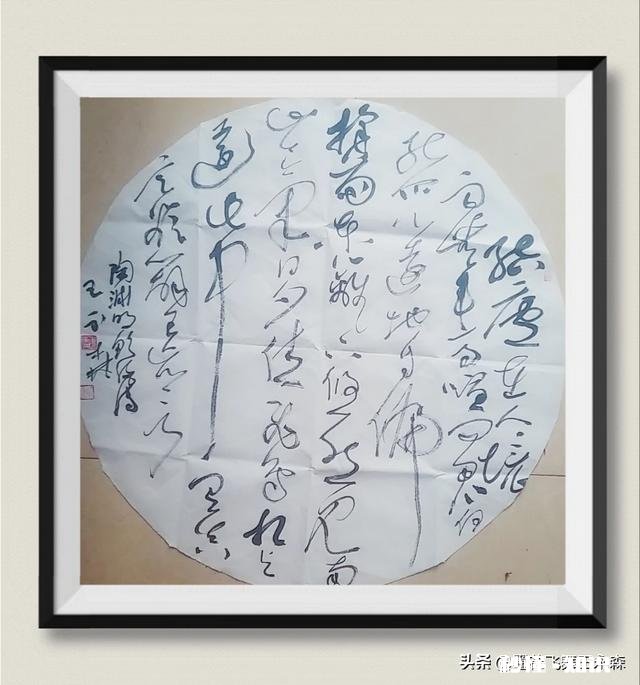 结庐在人境
而无车马喧问君何
能尔心远地自偏
採菊东篱下悠然见南
山气日夕佳飞鸟相与
还此中
欲辨已忘言
陶渊明饮酒诗
头条